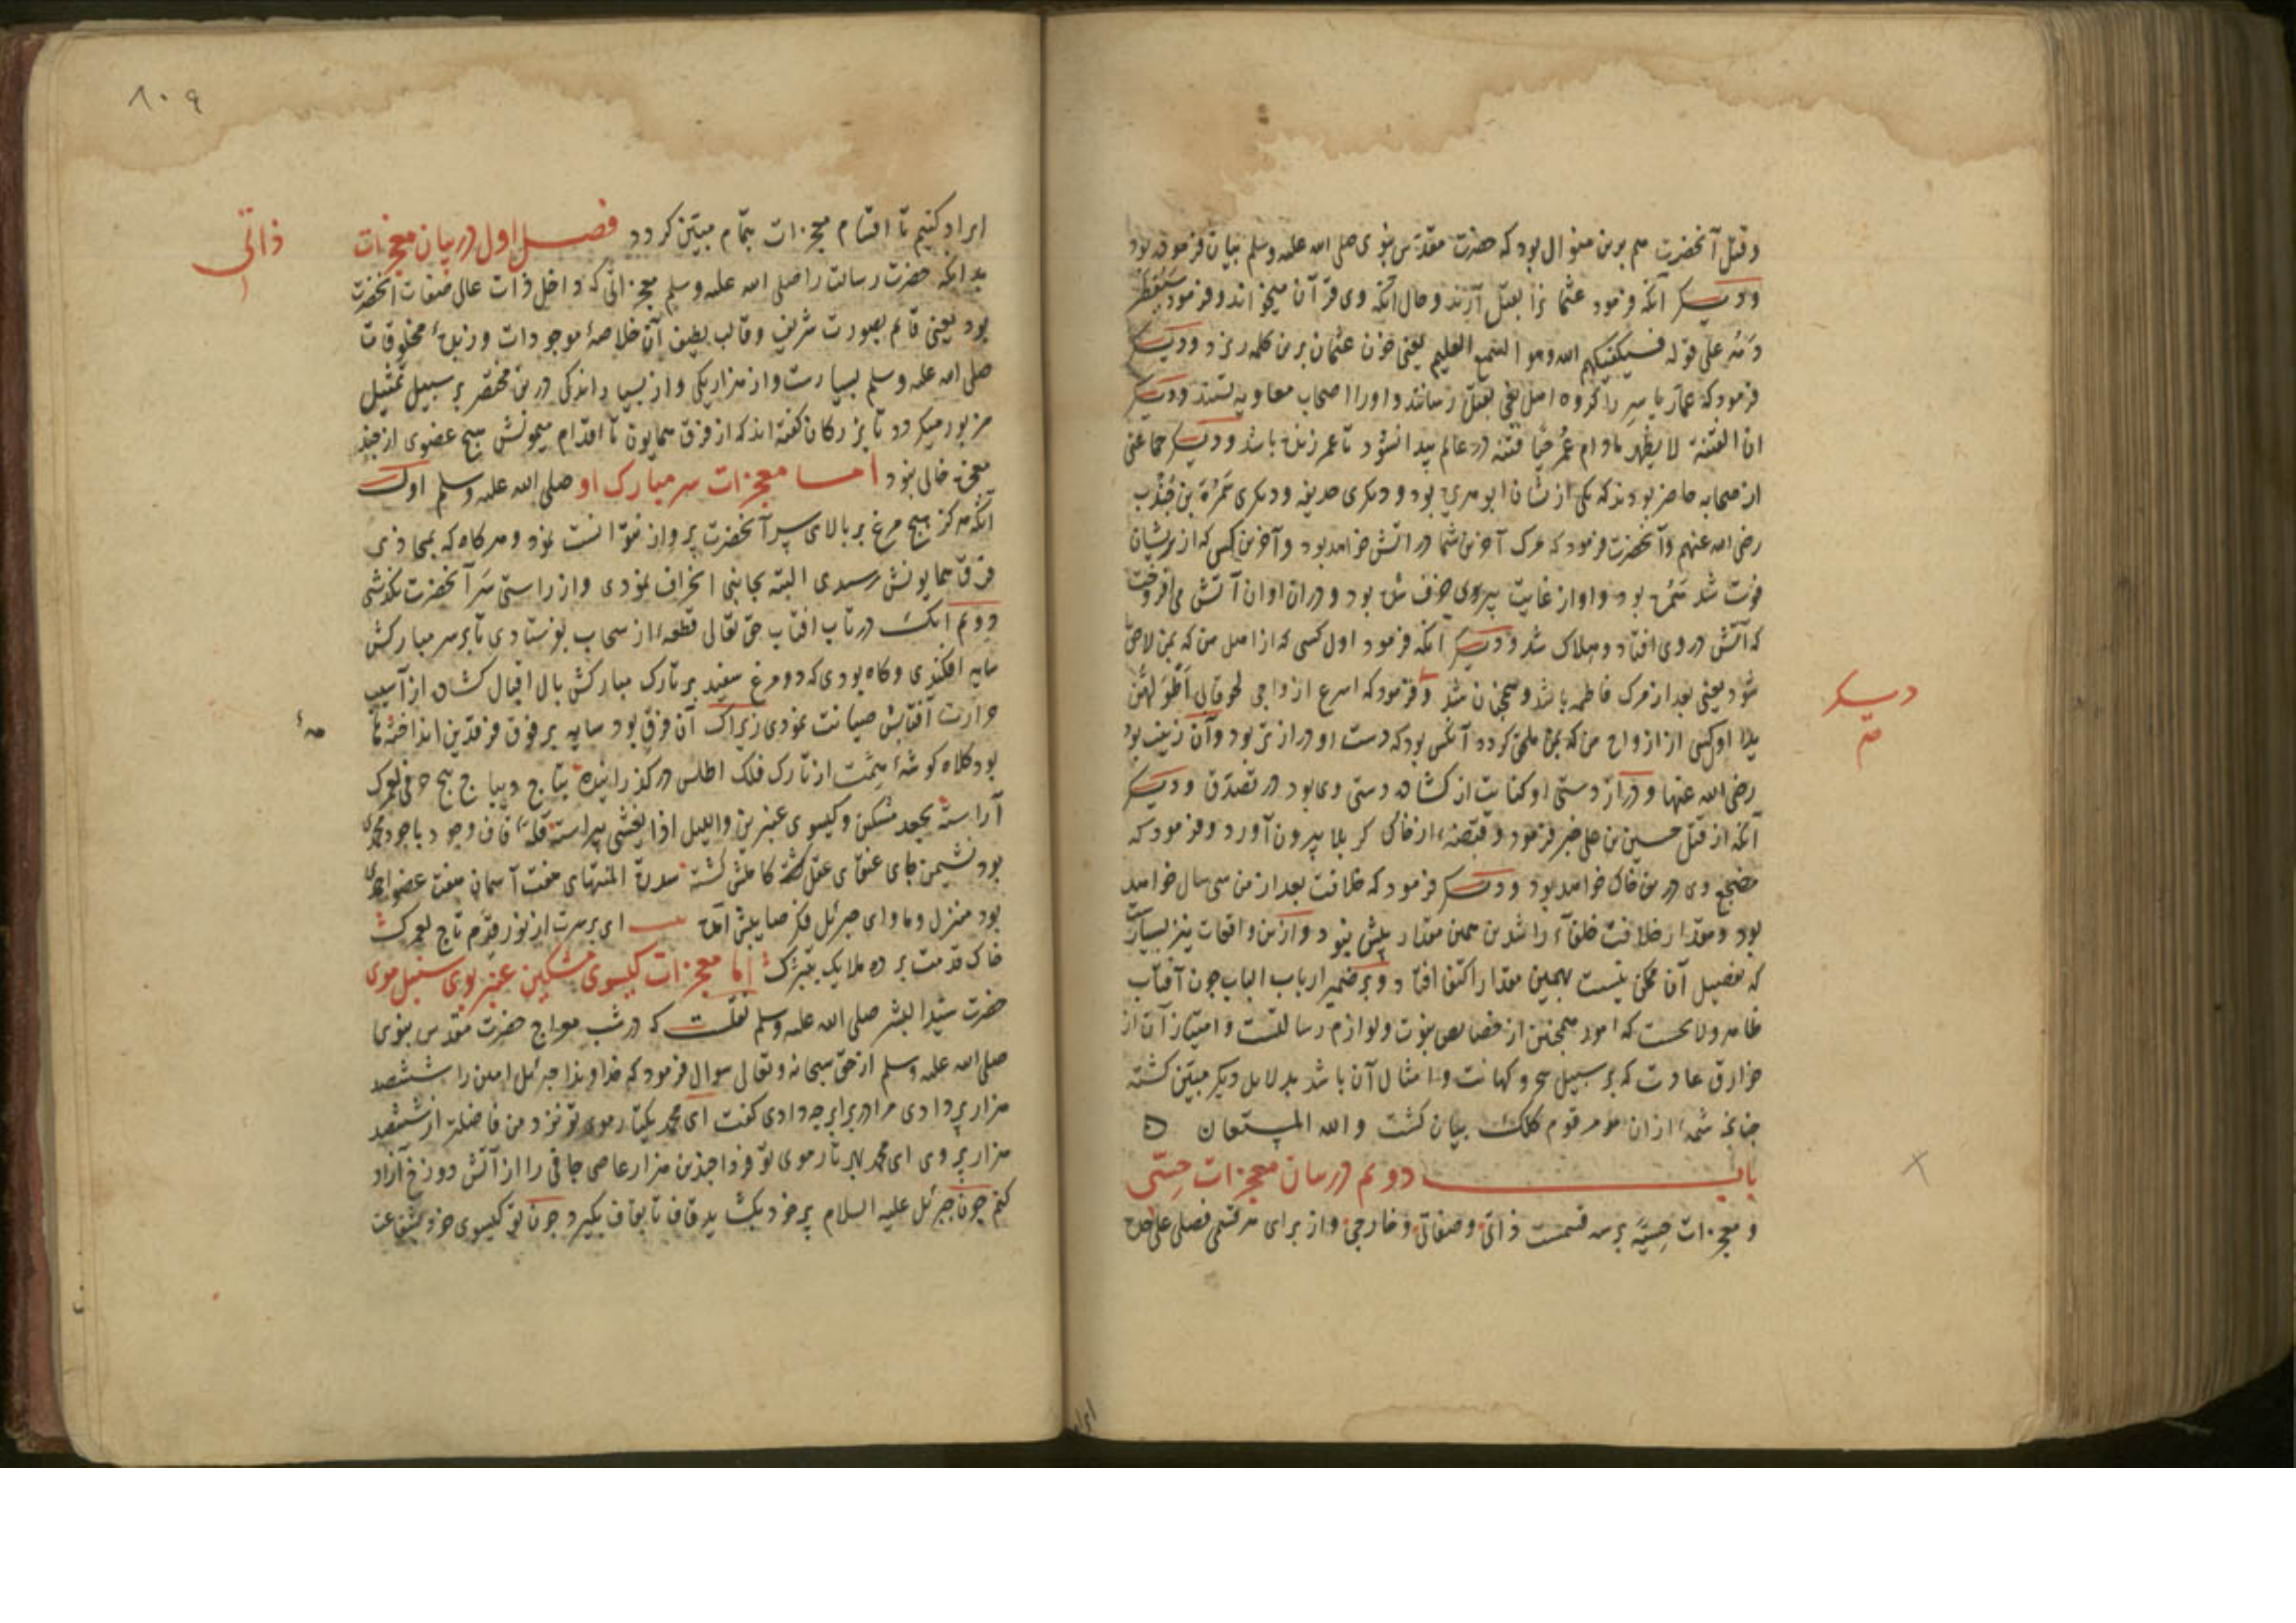 وقتل آنحضرت هم برین منوال بود که حضرت مقدس نبوی صلی الله علیه وسلم بیان فرموده بود
ودیگر آنکه فرمود عثمانرا بقتل آرند وحال آنکه وی قرآن میخواند وفرمود سَتَقطُر
دَمُه علی قوله فسیکفیکهم الله وهو السمیع العلیم یعنی خون عثمان برین کلمه ریزد ودیگر
فرمود که عمار یاسر را گروه اهل بغی بقتل رسانند واورا اصحاب معاویه کشتند ودیگر
ان الفتنة لا یظهر مادام عُمر حیّا فتنه در عالم پیدا نشود تا عمر زنده باشد ودیگر جماعتی
از صحابه حاضر بودند که یکی ازیشان ابو هریره بود ودیگری حذیفه ودیگری سَمُرَة بن جُنْدب
رضی الله عنهم وآنحضرت فرمود که مرک آخرین شما در آتش خواهد بود وآخرین کسی که ازیشان
فوت شد سَمُره بود واو از غایت پیروی خرف شده بود ودران اوان آتش می افروخت
که آتش در وی افتاد وهلاک شد ودیگر آنکه فرمود اول کسی که از اهل من که بمن لاحق
شود یعنی بعد از مرک فاطمه باشد وهمچنان شد وفرمود که اسرع ازواجی لحوقا بی اَطْوَلهُنّ
یدا اول کسی از ازواج من که بمن ملحق کردد آنکس بود که دست او درازتر بود وآن زینب بود
رضی الله عنها ودراز دستی او کنایت از کشاده دستی وی بود در تصدق ودیگر
آنکه از قتل حسین بن علی خبر فرمود وقبضهٔ از خاک کربلا بیرون آورد وفرمود که
مضجع وی درین خاک خواهد بود ودیگر فرمود که خلافت بعد از من سی سال خواهد
بود ومقدار خلافت خلفاء راشدین همین مقدار بیش نبود وازین واقعات نیز بسیارست
که تفصیل آن ممکن نیست بهمین مقدار اکتفا افتاد وبر ضمیر ارباب الباب چون آفتاب
ظاهر ولایحست که امور همچنین از خصایص نبوت ولوازم رسالتست وامتیاز آن از
خوارق عادت که بر سبیل سحر وکهانت وامثال آن باشد بدلایل دیگر مبیّن کشته
چنانچه شمهٔ ازان مرقوم کلک بیان کشت والله المستعان ه
باب دوم در بیان معجزات حسّی
ومعجزات حسیّه بر سه قسمست ذاتی وصفاتی وخارجی واز برای هر قسمی فصلی علی حده
دیگر
م
۸۰۹
ایراد کنیم تا اقسام معجزات بتمام مبیّن کردد فصل اول در بیان معجزات
ذاتی
بدانکه حضرت رسالت را صلی الله علیه وسلم معجزاتی که داخل ذات عالی صفات آنحضرت
بود یعنی قائم بصورت شریف وقالب لطیف آن خلاصهٔ موجودات وزبدهٔ مخلوقات
صلی الله علیه وسلم بسیارست واز هزار یکی واز بسیار اندکی درین مختصر بر سبیل تمثیل
مزبور میکردد تا بزرکان کفته اند که از فرق همایون تا اقدام میمونش هیچ عضوی از چند
معجزه خالی نبود اما معجزات سر مبارک او صلی الله علیه وسلم اول
آنکه هرکز هیچ مرغ بر بالای سر آنحضرت پرواز نتوانست نمود وهر کاه که بمحاذی
فرق همایونش رسیدی البته بجانبی انحراف نمودی واز راستی سَر آنحضرت نکذشتی
دوم آنکه در تاب آفتاب حق تعالی قطعهٔ از سحاب بفرستادی تا بر سر مبارکش
سایه افکندی وکاه بودی که دو مرغ سفید بر تارک مبارکش بال اقبال کشاده از آسیب
حرارت آفتابش صیانت نمودی زیراک آن فرق بود سایه بر فوق فرقدین انداخته تا
بود کلاه کوشهٔ همت از تارک فلک اطلس در کذرانیده بتاج دیباج لعمرک
آراسته بجعد مشکین وکیسوی عنبرین واللیل اذا یغشی پیراسته قلهٔ قاف وجود باجود محمدی
بود نشیمن جای عنقای عقل کاملش کشته سدرة المنتهای هفت آسمان هفت عضو احمدی
بود منزل وماوای جبرئیل فکر صایبش آمده ای بر سرت از نور قدم تاج لعمرک
خاک قدمت بر ده ملایک بتبرّک اما معجزات کیسوی مشکین عنبر بوی سنبل موی
حضرت سیّد البشر صلی الله علیه وسلم نقلست که در شب معراج حضرت مقدس نبوی
صلی الله علیه وسلم از حق سبحانه وتعالی سوال فرمود که خداوندا جبرئیل امین را ششصد
هزار پر دادی مرا در برابر چه دادی کفت ای محمد یکتار موی تو نزد من فاضلتر از ششصد
هزار پر وی ای محمد بهر تار موی تو فردا چندین هزار عاصی جافی را از آتش دوزخ آزاد
کنم چون جبرئیل علیه السلام پر خود بکشاید قاف تا بقاف بکیرد چون تو کیسوی خود بشفاعت